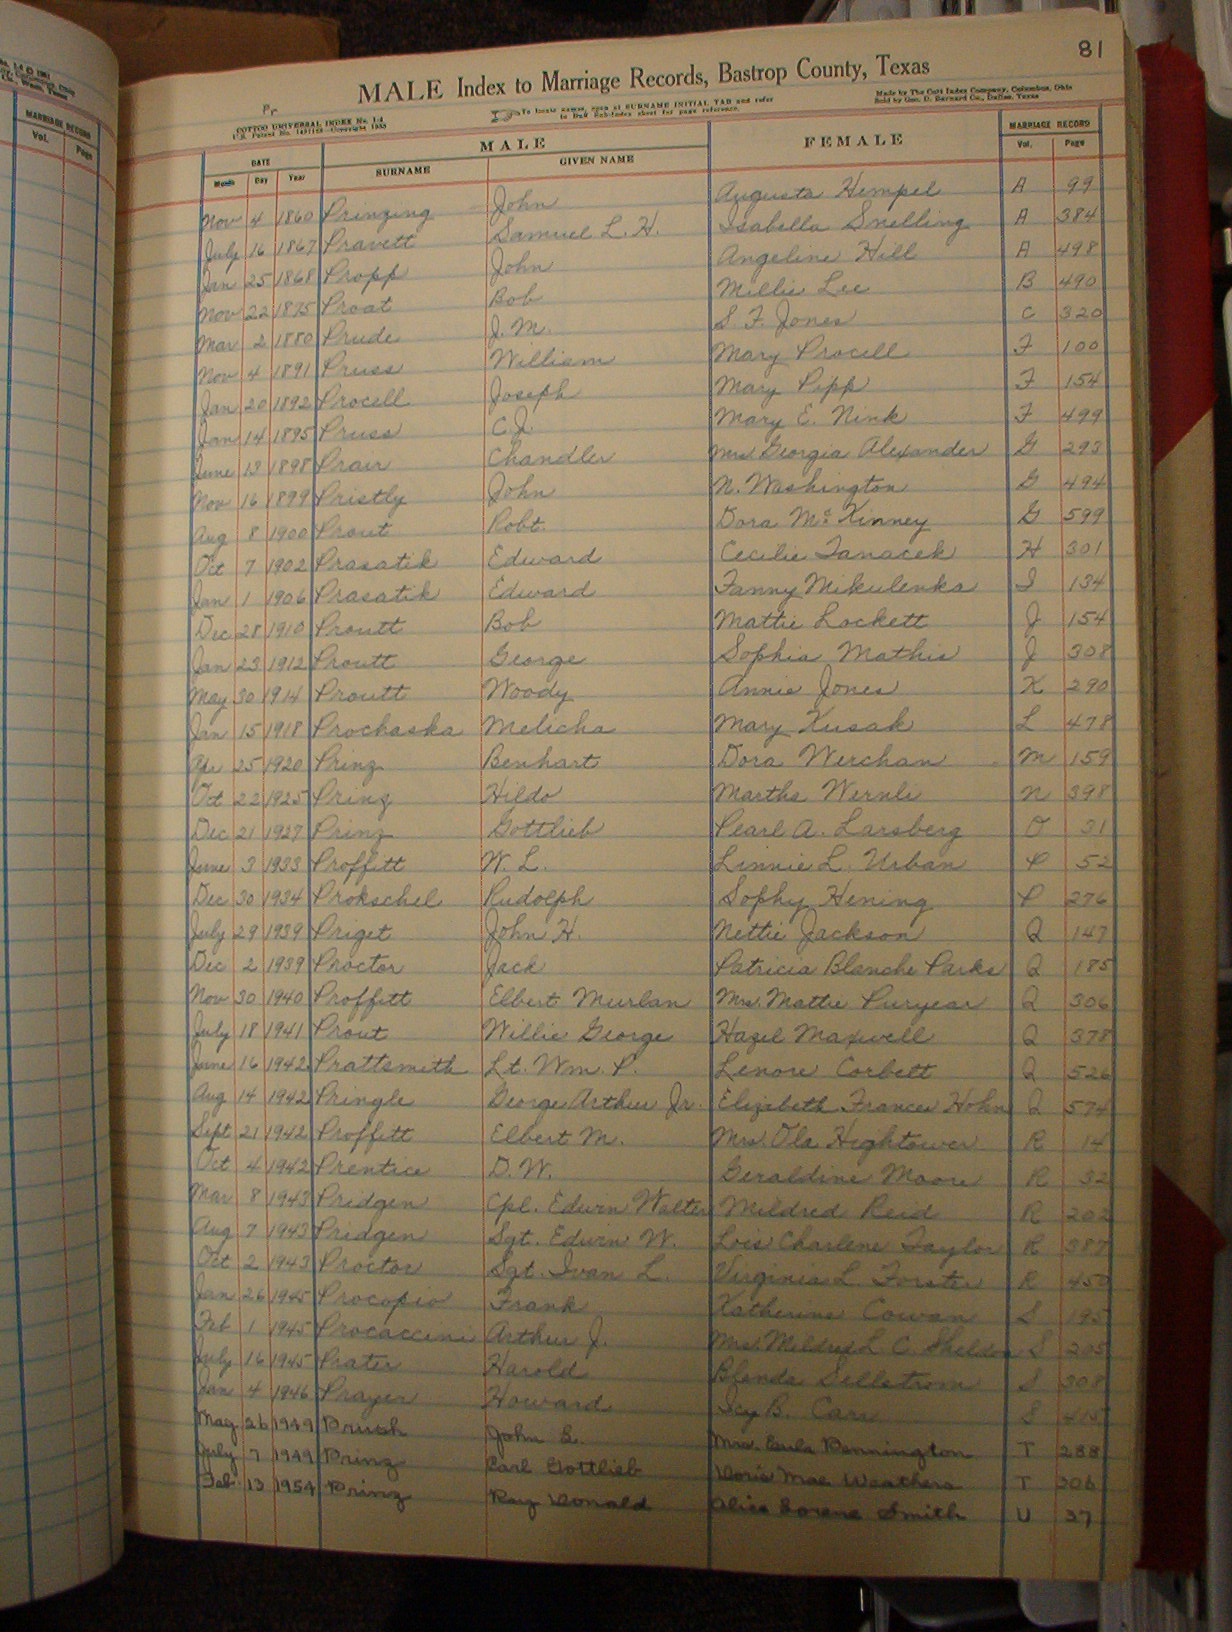 81
MALE Index to Marriage Records, Bastrop County, Texas
Pr
COTTCO UNIVERSAL INDEX No. 1-4
To locate names, open at SURNAME INITIAL TAB and refer
to Buff Sub-Index sheet for page reference.
Made by The Cott Index Company, Columbus, Ohio
Sold by Geo. D. Barnard Co., Dallas, Texas
MARRIAGE RECORD
Vol. Page
DATE MALE FEMALE MARRIAGE RECORD
Month Day Year SURNAME GIVEN NAME Vol. Page
Nov 4 1860 Prinzing John Augusta Hempel A 99
July 16 1867 Pravett Samuel L. H. Isabella Snelling A 384
Jan 25 1868 Propp John Angeline Hill A 498
Nov 22 1875 Proat Bob Millie Lee B 490
Mar 2 1880 Prude J. M. S. F. Jones C 320
Nov 4 1891 Pruss William Mary Procell F 100
Jan 20 1892 Procell Joseph Mary Pipp F 154
Jan 14 1895 Pruss C. J. Mary E. Nink F 499
June 13 1898 Prair Chandler Mrs Georgia Alexander G 293
Nov 16 1899 Pristly John N. Washington G 494
Aug 8 1900 Prout Robt. Dora McKinney G 599
Oct 7 1902 Prasatik Edward Cecilie Janacek H 301
Jan 1 1906 Prasatik Edward Fanny Mikulenka I 134
Dec 28 1910 Proutt Bob Mattie Lockett J 154
Jan 23 1912 Proutt George Sophia Mathis J 308
May 30 1914 Proutt Woody Annie Jones K 290
Jan 15 1918 Prochaska Melicha Mary Kusak L 478
Apr 25 1920 Prinz Benhart Dora Werchan M 159
Oct 22 1925 Prinz Hildo Martha Wernli N 398
Dec 21 1927 Prinz Gottlieb Pearl A. Larsberg O 31
June 3 1933 Proffitt W. L. Linnie L. Urban P 52
Dec 30 1934 Prokschel Rudolph Sophy Hening P 276
July 29 1939 Priget John H. Nettie Jackson Q 147
Dec 2 1939 Proctor Jack Patricia Blanche Parks Q 185
Nov 30 1940 Proffitt Elbert Murlan Mrs. Mattie Puryear Q 306
July 18 1941 Prout Willie George Hazel Maxwell Q 378
June 16 1942 Prattsmith Lt. Wm. P. Lenore Corbett Q 526
Aug 14 1942 Pringle George Arthur Jr. Elizabeth Frances Hohn Q 574
Sept 21 1942 Proffitt Elbert M. Mrs. Ola Hightower R 14
Oct 4 1942 Prentice D. W. Geraldine Moore R 32
Mar 8 1943 Pridgen Cpl. Edwin Walter Mildred Reid R 202
Aug 7 1943 Pridgen Sgt. Edwin W. Lois Charlene Taylor R 387
Oct 2 1943 Proctor Sgt. Ivan L. Virginia L. Forster R 450
Jan 26 1945 Procopio Frank Katherine Cowan S 195
Feb 1 1945 Procaccini Arthur J. Mrs. Mildred L. C. Sheldon S 205
July 16 1945 Prater Harold Blenda Sellstrom S 308
Jan 4 1946 Prayer Howard Icy B. Carr S 415
May 26 1949 Prush John E. Mrs. Eula Pennington T 288
July 7 1949 Prinz Carl Gottlieb Doris Mae Weathers T 306
Feb 13 1954 Prinz Ray Donald Alice Lorene Smith U 37